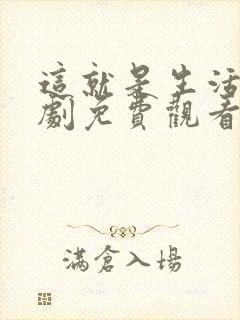 這就是生活
劇免費觀看
滿倉入場